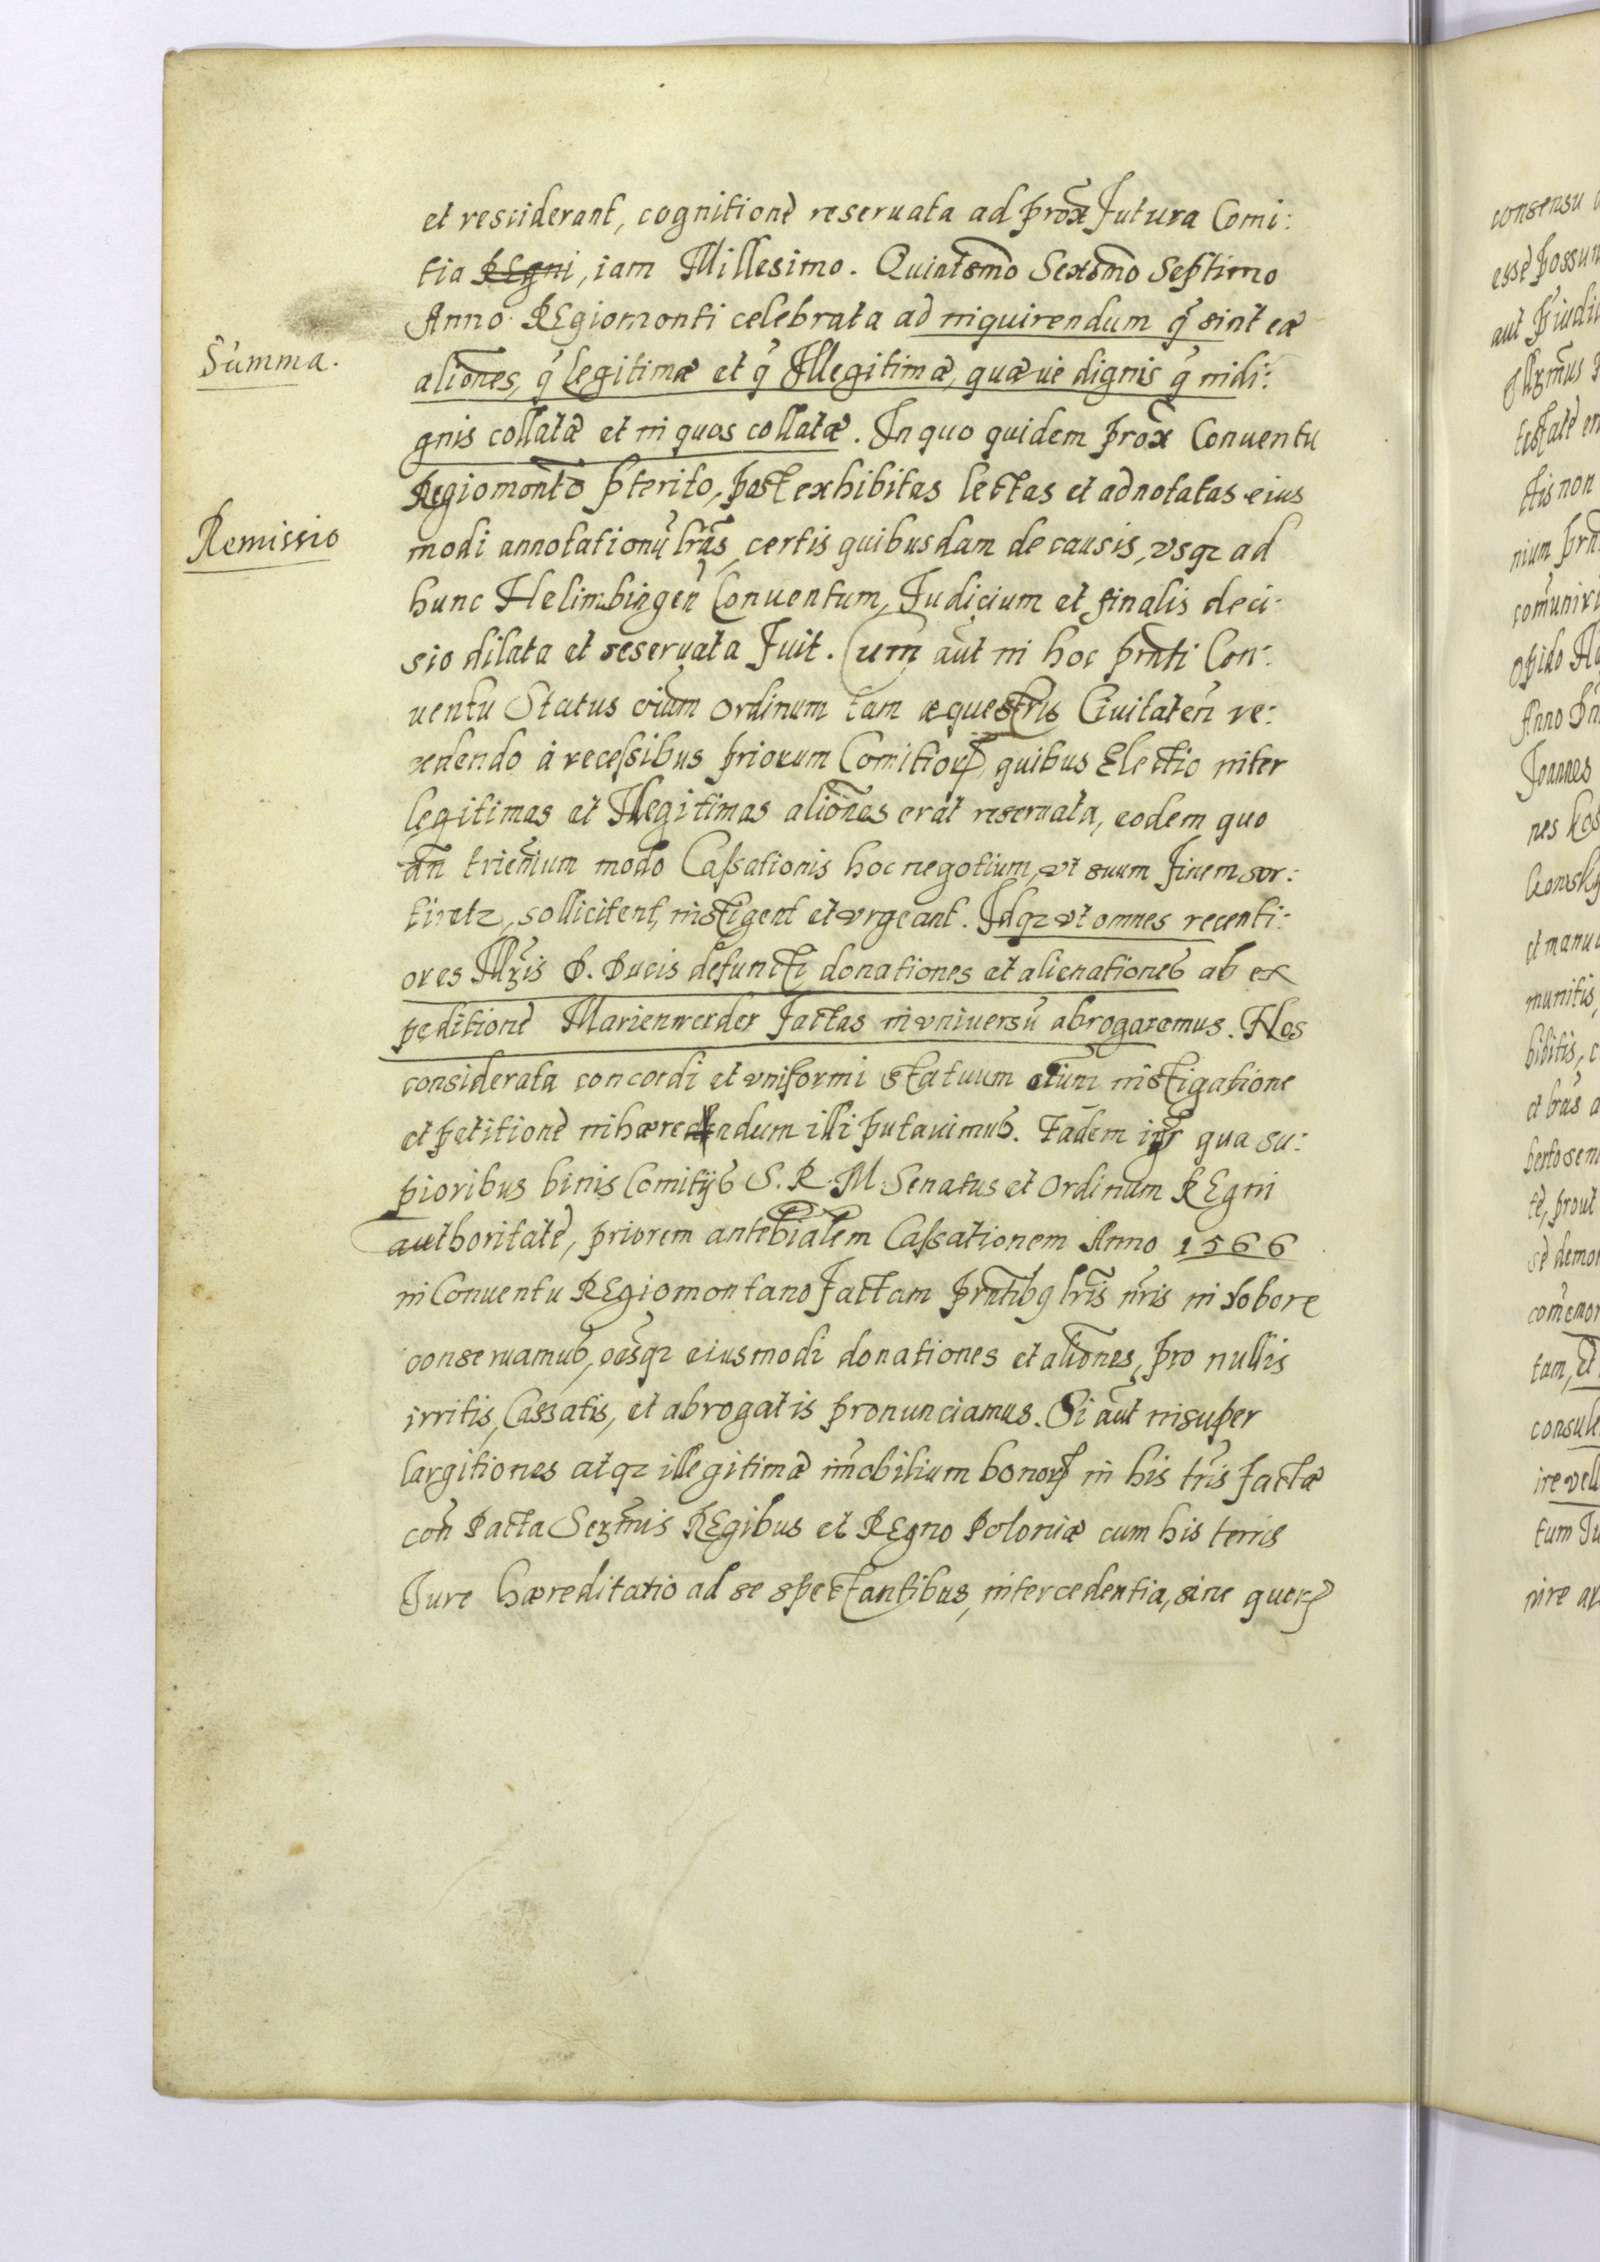 et resciderant, cognitionè reseruata ad prox̄ futura Comi:
tia REgni, iam Millesimo. Quintsm̄o Sexsm̄o Septimo
Anno REgiomonti celebrata ad inquirendum q̄ sint eæ
Summa.
alīones, q̄ legitimæ et q̄ Illegitimæ, quæ uè dignis q̄ indi:
gnis collatæ et in quos collatæ. In quo quidem prox̄ Conuentu
Regiomontō p̄terito, post exhibitas lectas et adnotatas eius
Remissio
modi annotationū lrās, certis quibusdam de causis, vsqz ad
hunc Helimbirgen̄ Conuentum, Judicium et finalis deci:
sio dilata et reseruata fuit. Cum aūt in hoc prn̄ti Con:
uentu Status oīum Ordinum tam æquestris Ciuitaten̄ re:
cedendo à recessibus priorum Comitiorꝝ, quibus Electio inter
legitimas et Illegitimas alīones erat reseruata, eodem quo
an̄ trien̄ium modo Cassationis hoc negotium, vt suum finem sor:
tiretz, sollicitent, instigent et vrgeant. Idqz vt omnes recenti:
ores Illr̄is D. Ducis defuncti donationes et alienationes ab ex
peditionè Marienwerder factas in vniuersū abrogaremus. Nos
considerata concordi et vniformi statuum oīum instigatione
et petitionè inhærendum illi putauimus. Eādem igr̄ qua su:
pioribus binis Comitijs S. R. M. Senatus et Ordinum REgni
authoritatè, priorem antebialem Cassationem Anno 1566
in Conuentu REgiomontano factam prn̄tibq lrīs nr̄is in robore
conseruamus, oēsqz eiusmodi donationes et alīones, pro nullis
irritis, Cassatis, et abrogatis pronunciamus. Si aūt insuper
largitiones atqz illegitimæ im̄obilium bonorꝝ in his tr̄is factæ
con̄ Pacta Serm̄is REgibus et REgno Poloniæ cum his terris
Jure hæreditatio ad se spectantibus, intercedentia, sine
consensu
esse possun
aut
tis non
nium
opido
Anno
Joannes
nes
et manu
munitis,
bilitis,
tè, prout
sè demo
tam, et
consule
ire vell
tum Ju